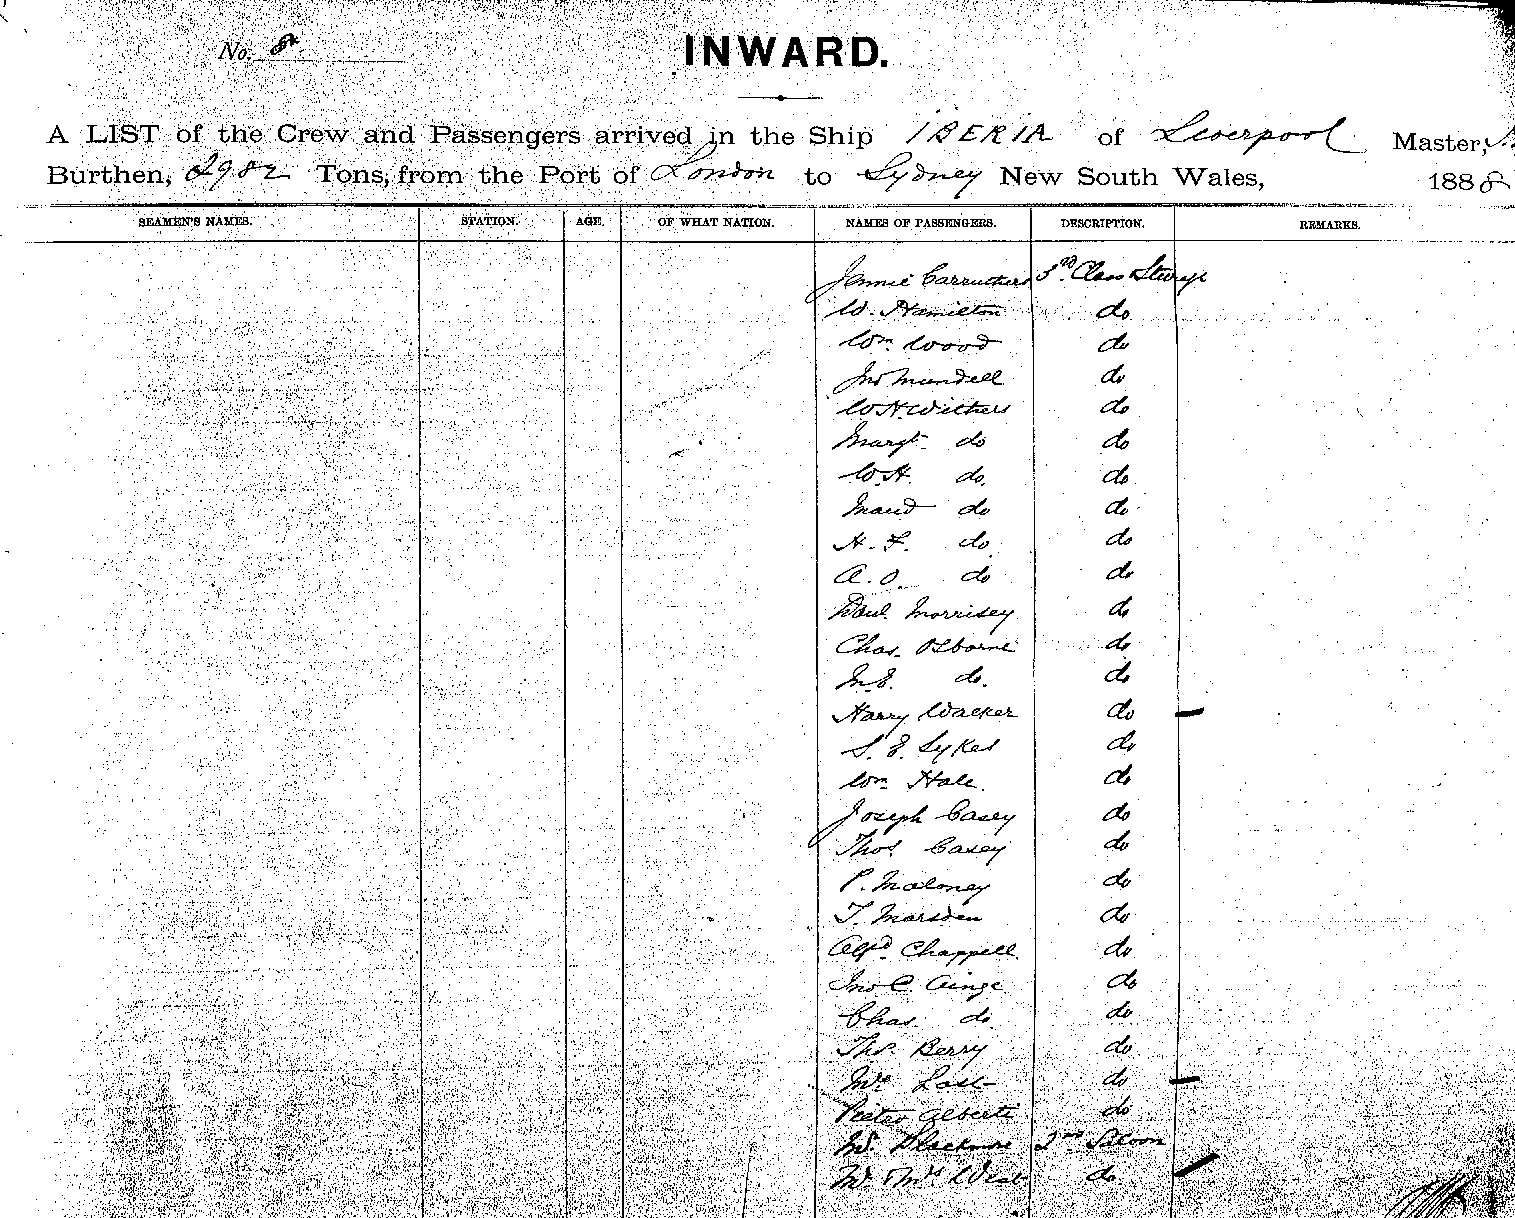 No. 8
INWARD.
A LIST of the Crew and Passengers arrived in the Ship IBERIA of Liverpool Master,
Burthen, 2982 Tons, from the Port of London to Sydney New South Wales, 1888
SEAMEN'S NAMES. STATION. AGE. OF WHAT NATION. NAMES OF PASSENGERS. DESCRIPTION. REMARKS.
Jennie Carruthers 3rd Class Steerge
W. Hamilton do
Wm. Wood do
Jno Mundell do
W H. Withers do
Margt. do do
W. H. do. do
Maud do do
H. F. do do
A. O. do do
Danl. Morrisey do
Chas. Osborne do
M. E. do. do
Harry Walker do
S. E. Sykes do
Wm. Hale. do
Joseph Casey do
Thos. Casey do
P. Maloney do
T. Marsden do
Alfd. Chappell do
Jno C. Ainge do
Chas. do do
Thos. Berry do
Mrs Last do
Pieter Alberti do
Mr. Blackmore 2nd Saloon
Mr. & Mrs West do